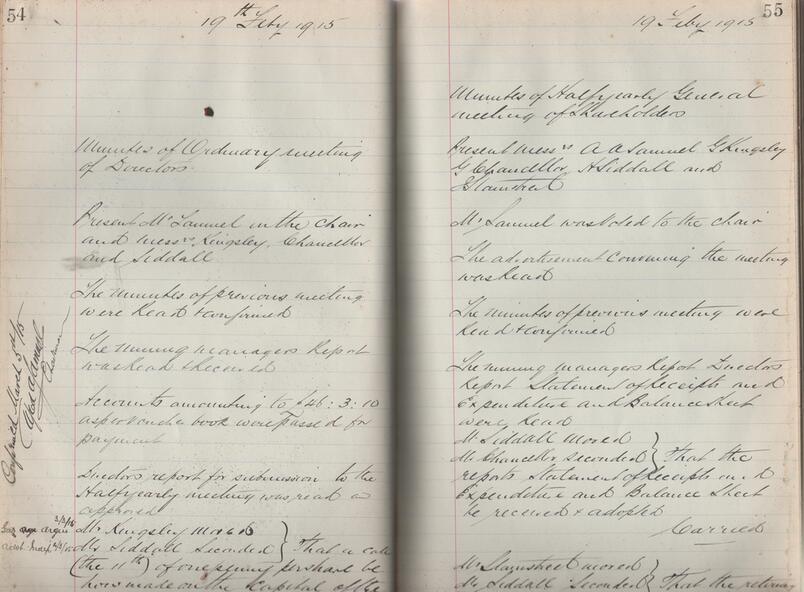 54
19th Feby 1915
Minutes of Ordinary meeting
of Directors.
Present Mr Samuel in the chair
and messrs Kingsley, Chancellor
and Siddall
The minutes of previous meeting
were Read & confirmed
The mining managers Report
was Read & Received
Accounts amounting to £46:3:10
as per voucher book were Passed for
payment
Directors report for submission to the
Halfyearly meeting was read &
approved
Mr Kingsley Moved
Mr Siddall Seconded } That a call
(the 11th) of one penny per share be
now made on the Capital of the
Confirmed March 5th/15
Samuel
Chairman
55
19 Feby 1915
Minutes of Halfyearly General
meeting of Shareholders
Present Messrs A A Samuel G Kingsley
G Chancellor, H Siddall and
Mr Samuel was Voted to the chair
The advertisement Convening the meeting
was Read
The minutes of previous meeting were
Read & confirmed
The mining managers Report Directors
Report Statement of Receipts and
Expenditure and Balance Sheet
were Read
Mr Siddall Moved
Mr Chancellor Seconded } That the
reports Statement of Receipts and
Expenditure and Balance Sheet
be received & adopted
Carried
moved
Mr Siddall Seconded } That the retiring